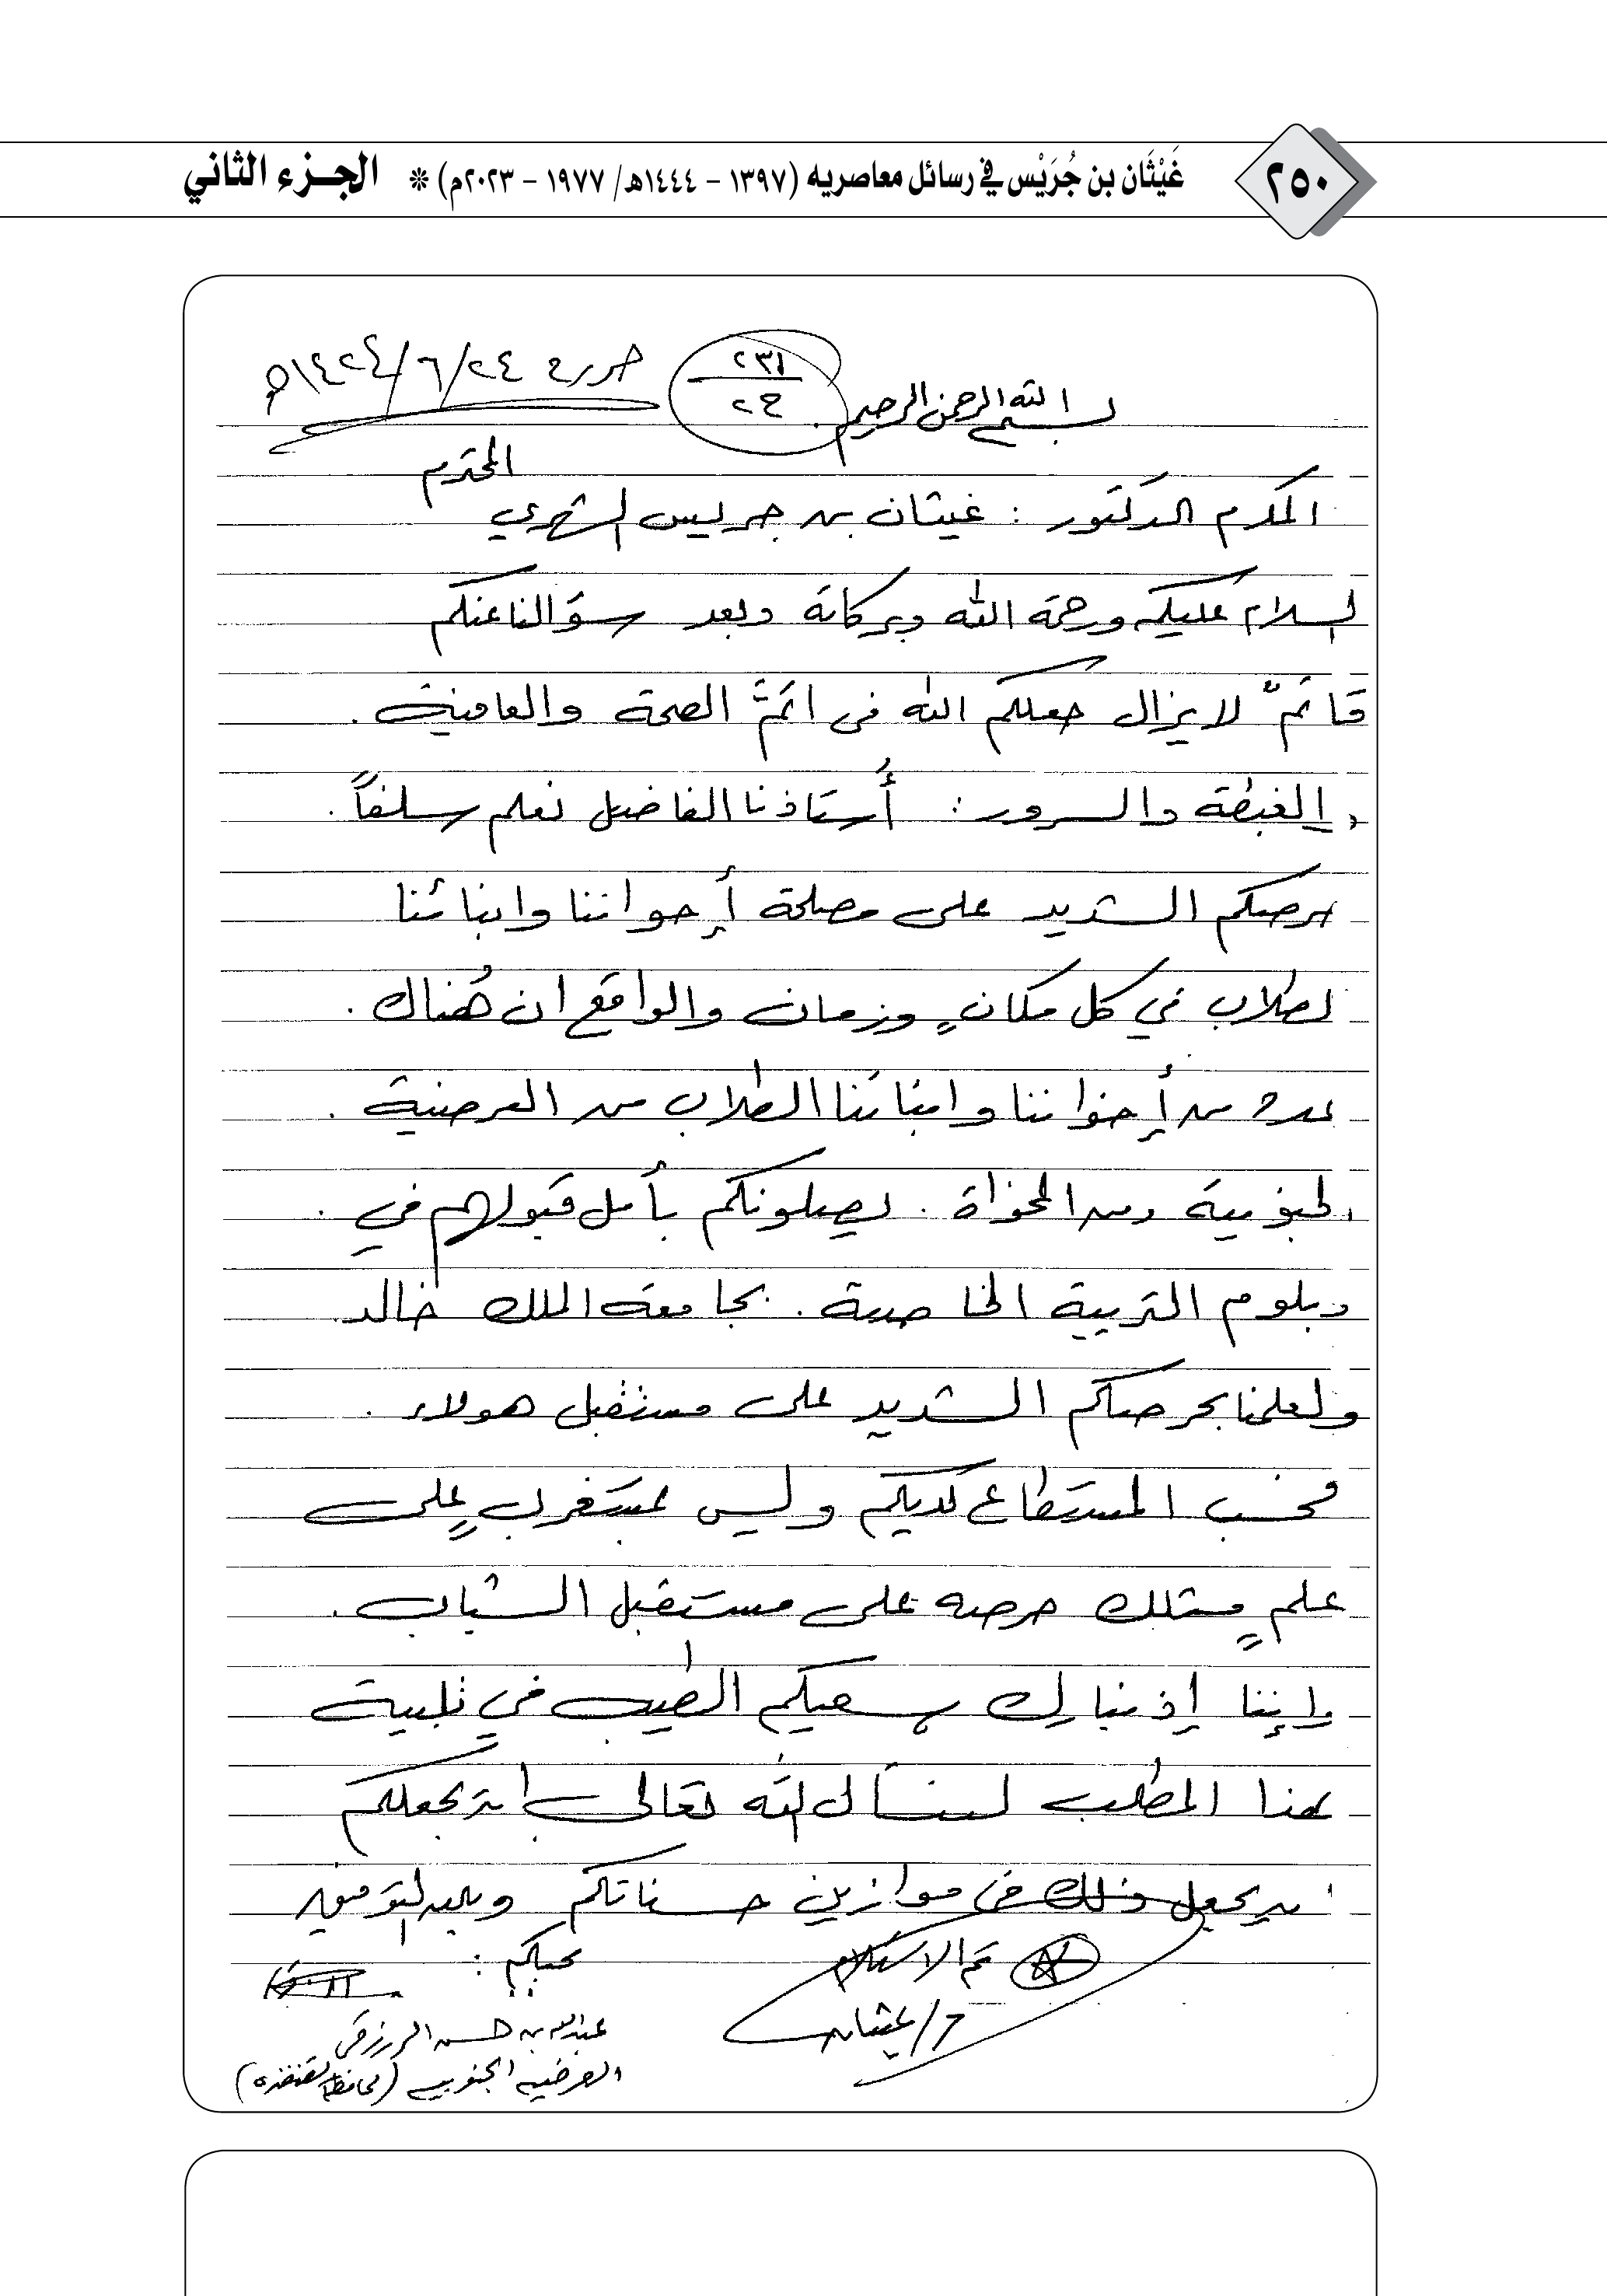 ٢٥٠
غَيْثَان بن جُرَيْس في رسائل معاصريه (١٣٩٧ - ١٤٤٤هـ/ ١٩٧٧ - ٢٠٢٣م) * الجزء الثاني
حرر في ٢٤/٦/١٤٢٤هـ
٢٣١
٢ح
بسم الله الرحمن الرحيم
المحترم
المكرم الدكتور : غيثان بن جريس الشهري
السلام عليكم ورحمة الله وبركاته وبعد سؤالنا عنكم
قائمٌ لا يزال جعلكم الله في اتمَّ الصحة والعافية .
والغبطة والسرور : أُستاذنا الفاضل نعلم سلفاً .
حرصكم الشديد على مصلحة أخواننا وابنائنا
لطلاب في كل مكانٍ وزمان والواقع ان هُناك .
عدد من أخواننا وابنائنا الطلاب من العرضية .
الجنوبية ومن المخواة . يصلونكم بأمل قبولهم في .
دبلوم التربية الخاصة . بجامعة الملك خالد
ولعلمنا بحرصكم الشديد على مستقبل هولاء .
فحسب المستطاع لديكم وليس بمستغربٍ على
علمٍ مثلك حرصه على مستقبل الشباب .
وإننا إذ نبارك سعيكم الطيب في تلبية
هذا المطلب لنسأل الله تعالى ان يجعلكم
ان يجعل ذلك في موازين حسناتكم وبالله التوفيق
محبكم :
تم الاستلام
د/ غيثان
عبدالله بن حسن الرزقي
العرضيه الجنوبيه (محافظة القنفذة)